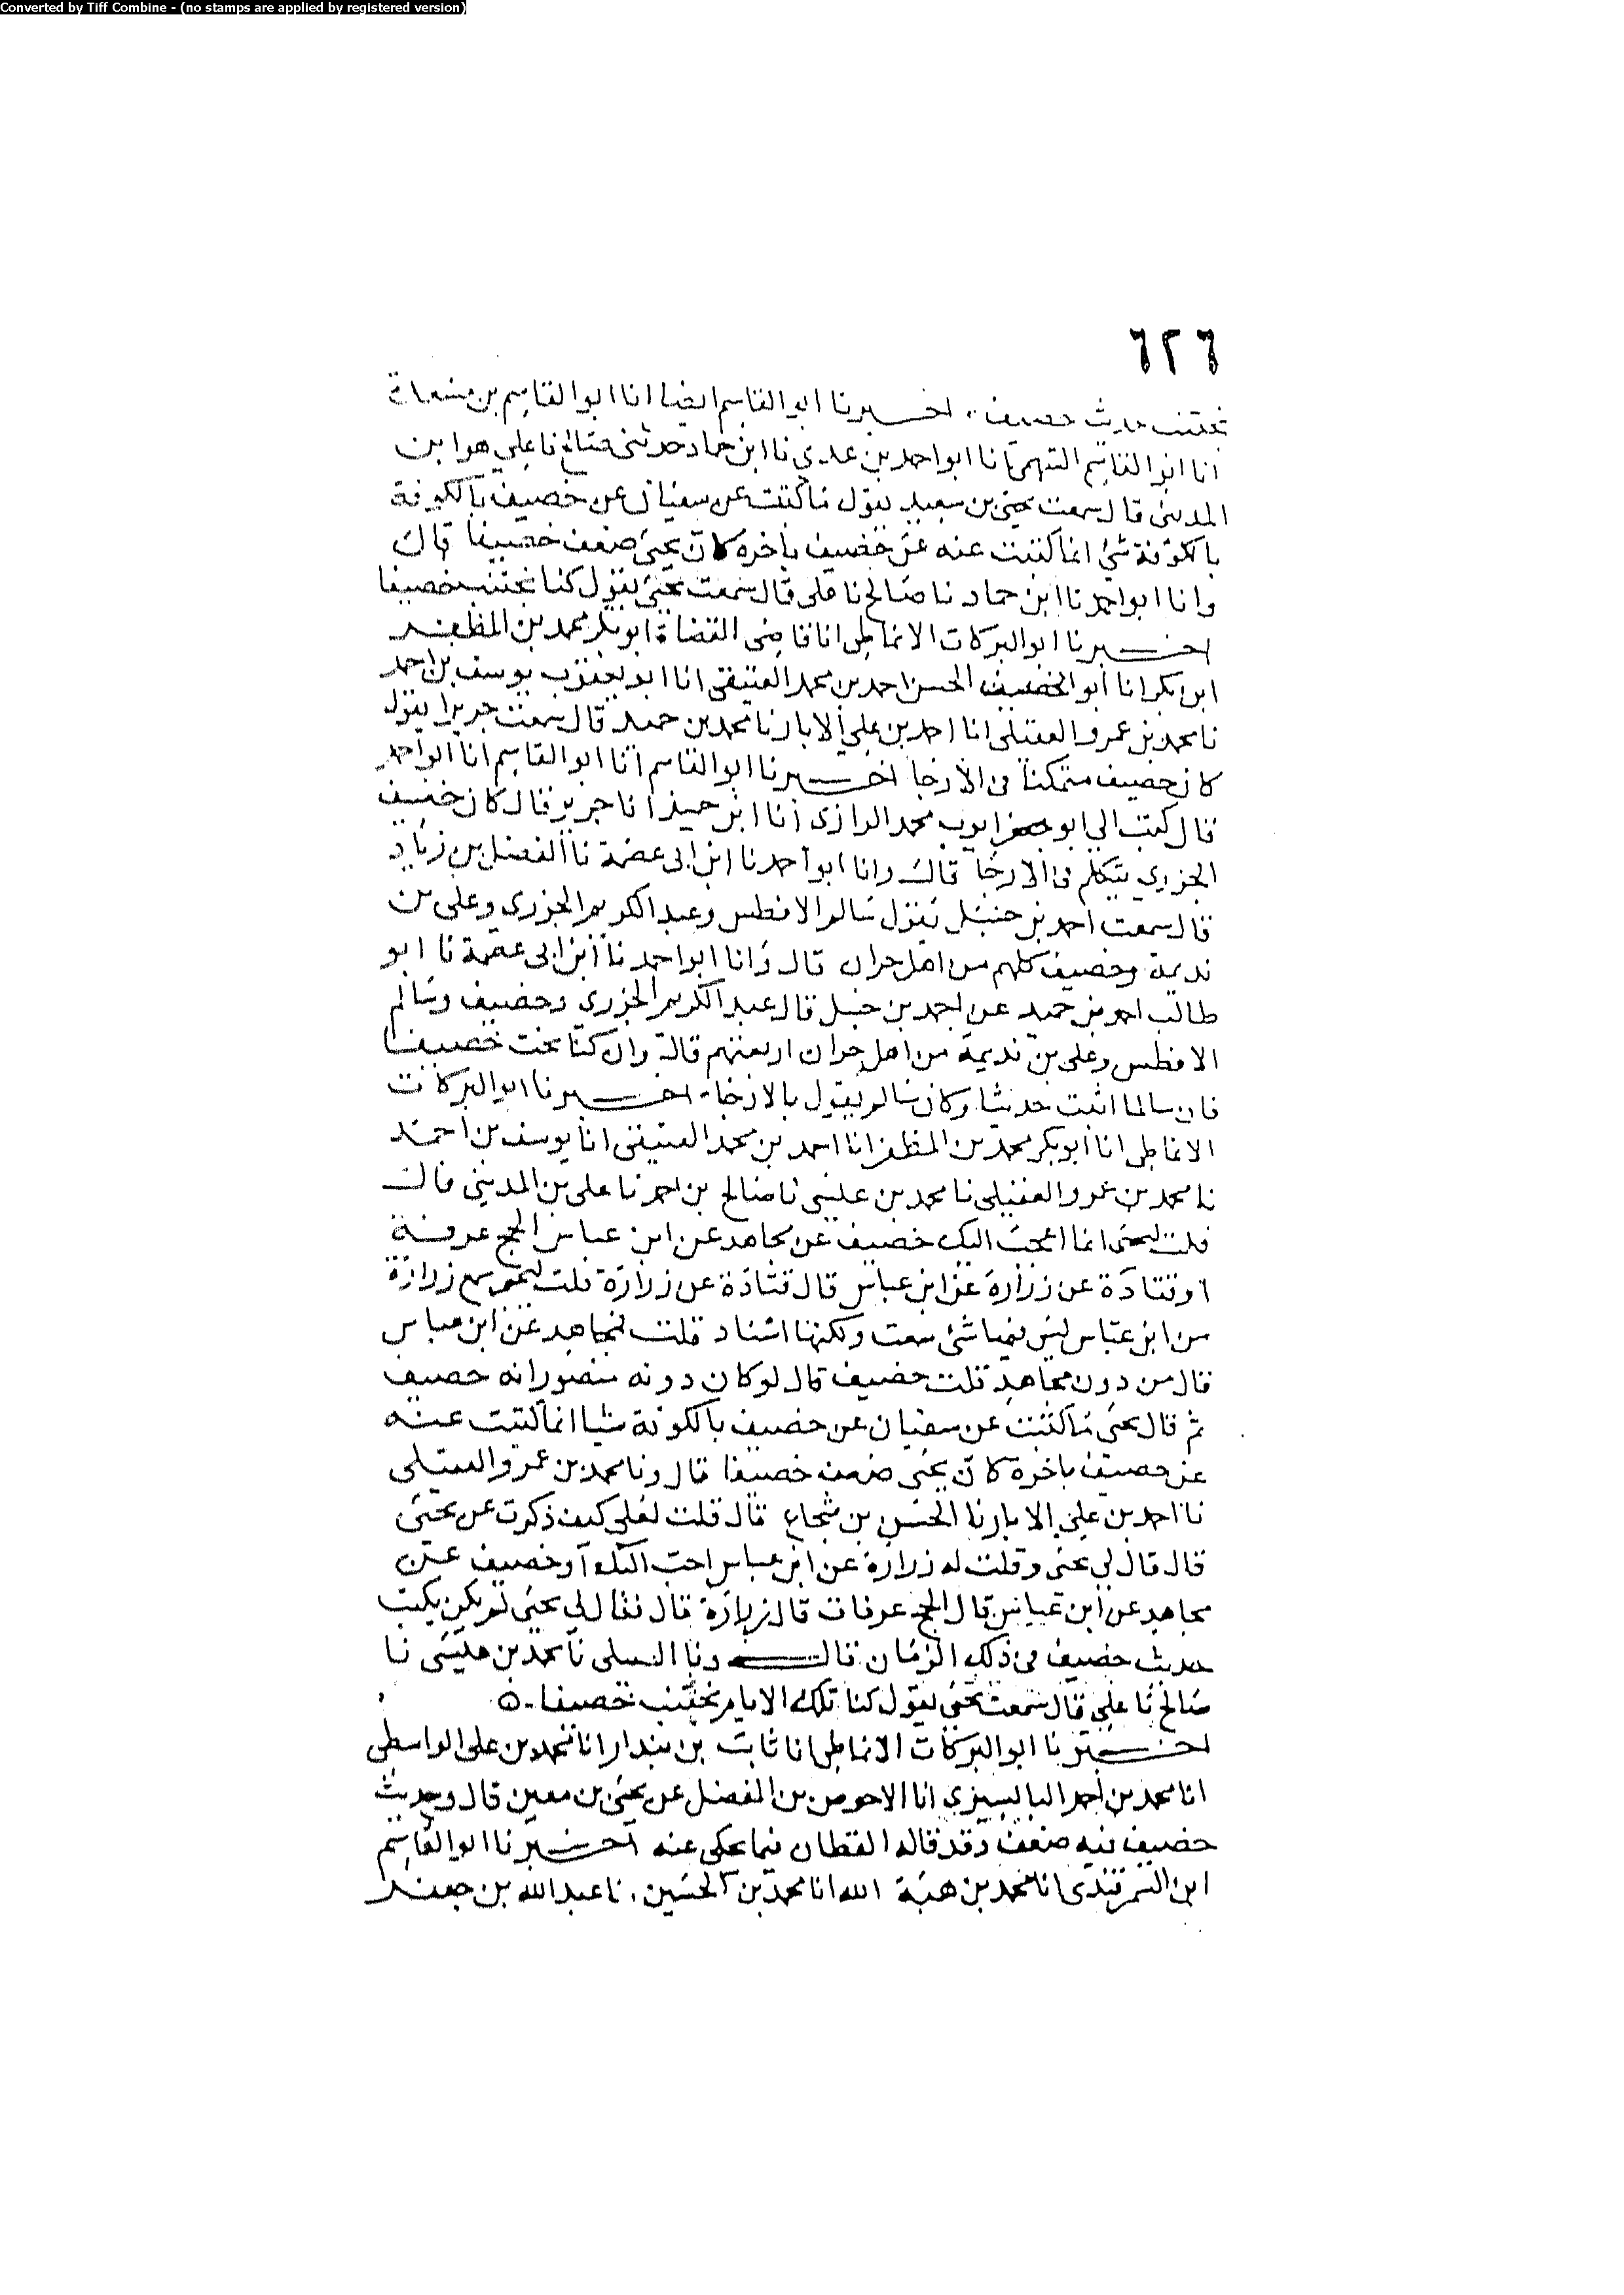 Converted by Tiff Combine - (no stamps are applied by registered version)
٦٢٦
نجتنب حديث خصيف اخبرنا ابو القاسم ايضا انا ابو القاسم بن مسعدة
انا ابو القاسم السهمي انا ابو احمد بن عدي نا ابن حماد حدثني صالح نا علي هو ابن
المديني قال سمعت يحيى بن سعيد يقول ما كتبت عن سفيان عن خصيف بالكوفة
بالكوفة شي انما كتبت عنه عن خصيف باخره كان يحيى ضعف خصيفا قال
وانا ابو احمد نا ابن حماد نا صالح نا علي قال سمعت يحيى يقول كنا نجتنب خصيفا
اخبرنا ابو البركات الانماطي انا قاضي القضاة ابو بكر محمد بن المظفر
ابن بكر انا ابو الحسن احمد بن محمد العتيقي انا ابو يعقوب يوسف بن احمد
نا محمد بن عمرو العقيلي انا احمد بن علي الابار نا محمد بن حميد قال سمعت جريرا يقول
كان خصيف متمكنا في الارجا اخبرنا ابو القاسم انا ابو القاسم انا ابو احمد
قال كتب الي ابو جعفر ايوب محمد الرازي انا ابن حميد انا جرير قال كان خصيف
الجزري يتكلم في الارجا قال وانا ابو احمد نا ابن ابي عصمة نا الفضل بن زياد
قال سمعت احمد بن حنبل يقول سالم الافطس وعبد الكريم الجزري وعلي بن
نديمة وخصيف كلهم من اهل حران قال وانا ابو احمد نا ابن ابي عصمة نا ابو
طالب احمد بن حميد عن احمد بن حنبل قال عبد الكريم الجزري وخصيف وسالم
الافطس وعلي بن نديمة من اهل حران اربعتهم قال وان كنا نحب خصيفا
فان سالما اثبت حديثا وكان سالم يقول بالارجا اخبرنا ابو البركات
الانماطي انا ابو بكر محمد بن المظفر انا احمد بن محمد العتيقي انا يوسف بن احمد
نا محمد بن عمرو العقيلي نا محمد بن عيسى نا صالح بن احمد نا علي بن المديني قال
قلت ليحيى ايما اعجب اليك خصيف عن مجاهد عن ابن عباس الحج عرفة
او قتادة عن زرارة عن ابن عباس قال قتادة عن زرارة قلت ليحيى سمع زرارة
من ابن عباس ليس فيها شي سمعت ولكنها اسناد قلت فمجاهد عن ابن عباس
قال من دون مجاهد قلت خصيف قال لو كان دونه منصور انه خصيف
ثم قال يحيى ما كتبت عن سفيان عن خصيف بالكوفة شيا انما كتبت عنه
عن خصيف باخرة كان يحيى ضعف خصيفا قال ونا محمد بن عمرو العقيلي
نا احمد بن علي الابار نا الحسن بن شجاع قال قلت لعلي كيف ذكرت عن يحيى
قال قال لي يحيى وقلت له زرارة عن ابن عباس احب اليك او خصيف عن
مجاهد عن ابن عباس قال الحج عرفات قال زرارة قال فقال لي يحيى لم يكن يكتب
حديث خصيف في ذلك الزمان قال ونا العقيلي نا محمد بن عيسى نا
صالح نا علي قال سمعت يحيى يقول كنا تلك الايام نجتنب خصيفا ٥
اخبرنا ابو البركات الانماطي انا ثابت بن بندار انا محمد بن علي الواسطي
انا محمد بن احمد البابسيري انا الاحوص بن المفضل عن يحيى بن معين قال وحديث
خصيف فيه ضعف وقد قاله القطان فيما يحكى عنه اخبرنا ابو القاسم
ابن السمرقندي انا محمد بن هبة الله انا محمد بن الحسين نا عبد الله بن جعفر